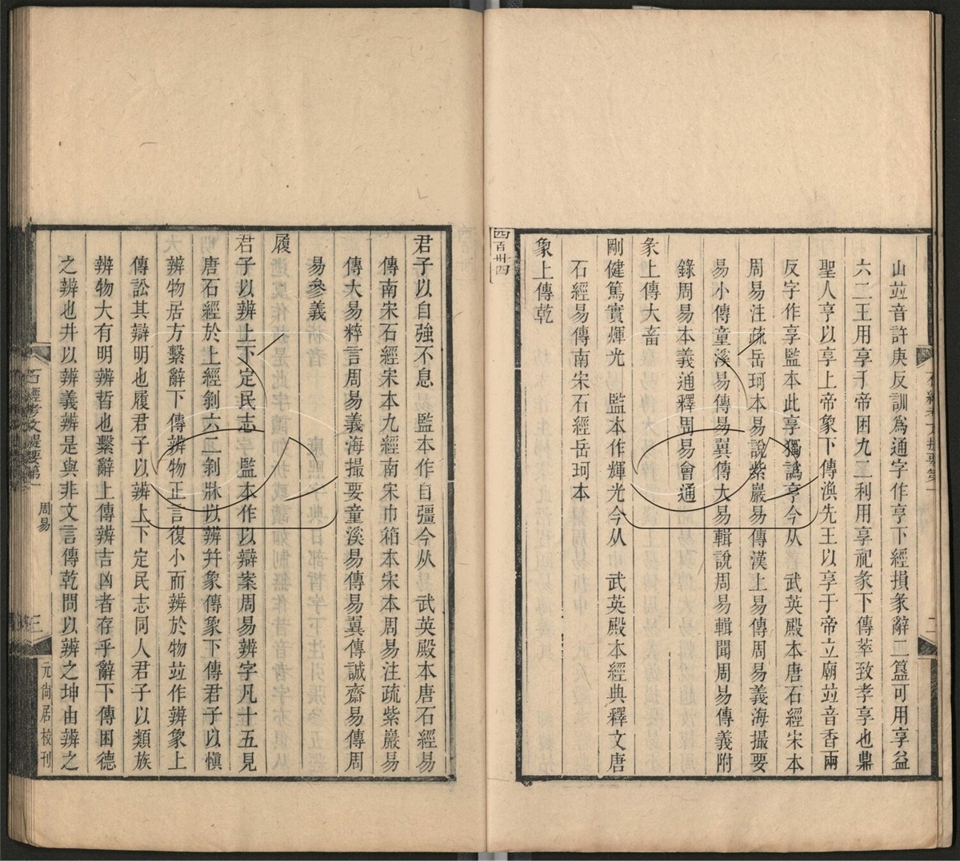 山竝音許庚反訓爲通字作亨下經損彖辭二簋可用享益
六二王用享于帝困九二利用享祀彖下傳萃致孝享也鼎
聖人亨以享上帝象下傳渙先王以享于帝立廟竝音香兩
反字作享監本此享獨譌亨今从　武英殿本唐石經宋本
周易注疏岳珂本易說紫巖易傳漢上易傳周易義海撮要
易小傳童溪易傳易翼傳大易輯說周易輯聞周易傳義附
錄周易本義通釋周易會通
彖上傳大畜
剛健篤實煇光　監本作輝光今从　武英殿本經典釋文唐
石經易傳南宋石經岳珂本
象上傳乾
四百卅四
君子以自強不息　監本作自彊今从　武英殿本唐石經易
傳南宋石經宋本九經南宋巾箱本宋本周易注疏紫巖易
傳大易粹言周易義海撮要童溪易傳易翼傳誠齋易傳周
易參義
履
君子以辨上下定民志　監本作以辯案周易辨字凡十五見
唐石經於上經剝六二剝牀以辨幷象傳象下傳君子以愼
辨物居方繫辭下傳辨物正言復小而辨於物竝作辨象上
傳訟其辯明也履君子以辨上下定民志同人君子以類族
辨物大有明辨晢也繫辭上傳辨吉凶者存乎辭下傳困德
之辨也井以辨義辨是與非文言傳乾問以辨之坤由辨之
石經考文提要第一
周易
三
元尚居校刊